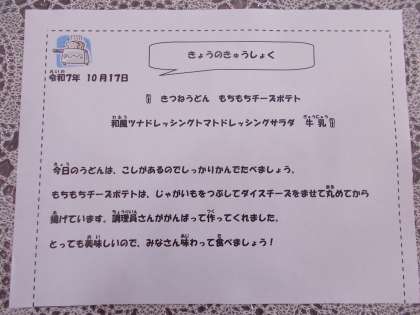 きょうのきゅうしょく
令和7年 10月17日
きつねうどん もちもちチーズポテト
和風ツナドレッシングトマトドレッシングサラダ 牛乳
今日のうどんは、こしがあるのでしっかりかんでたべましょう。
もちもちチーズポテトは、じゃがいもをつぶしてダイスチーズをまぜて丸めてから
揚げています。調理員さんががんばって作ってくれました。
とっても美味しいので、みなさん味わって食べましょう！